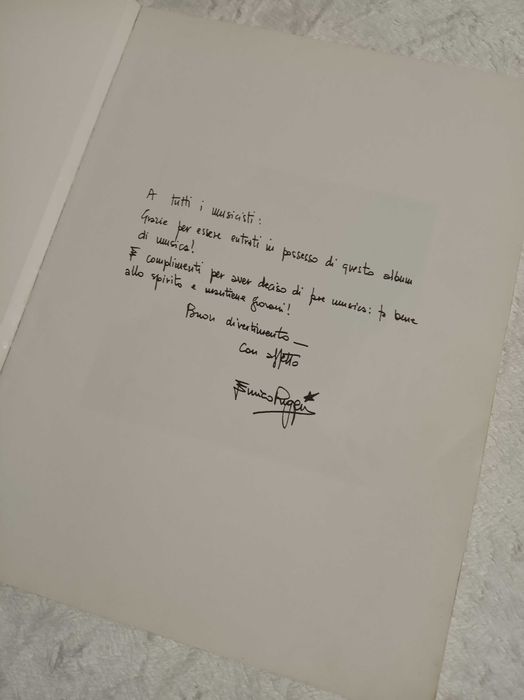 A tutti i musicisti:
Grazie per essere entrati in possesso di questo album
di musica!
E complimenti per aver deciso di fare musica: fa bene
allo spirito e mantiene giovani!
Buon divertimento_
Con affetto
Enrico Ruggeri